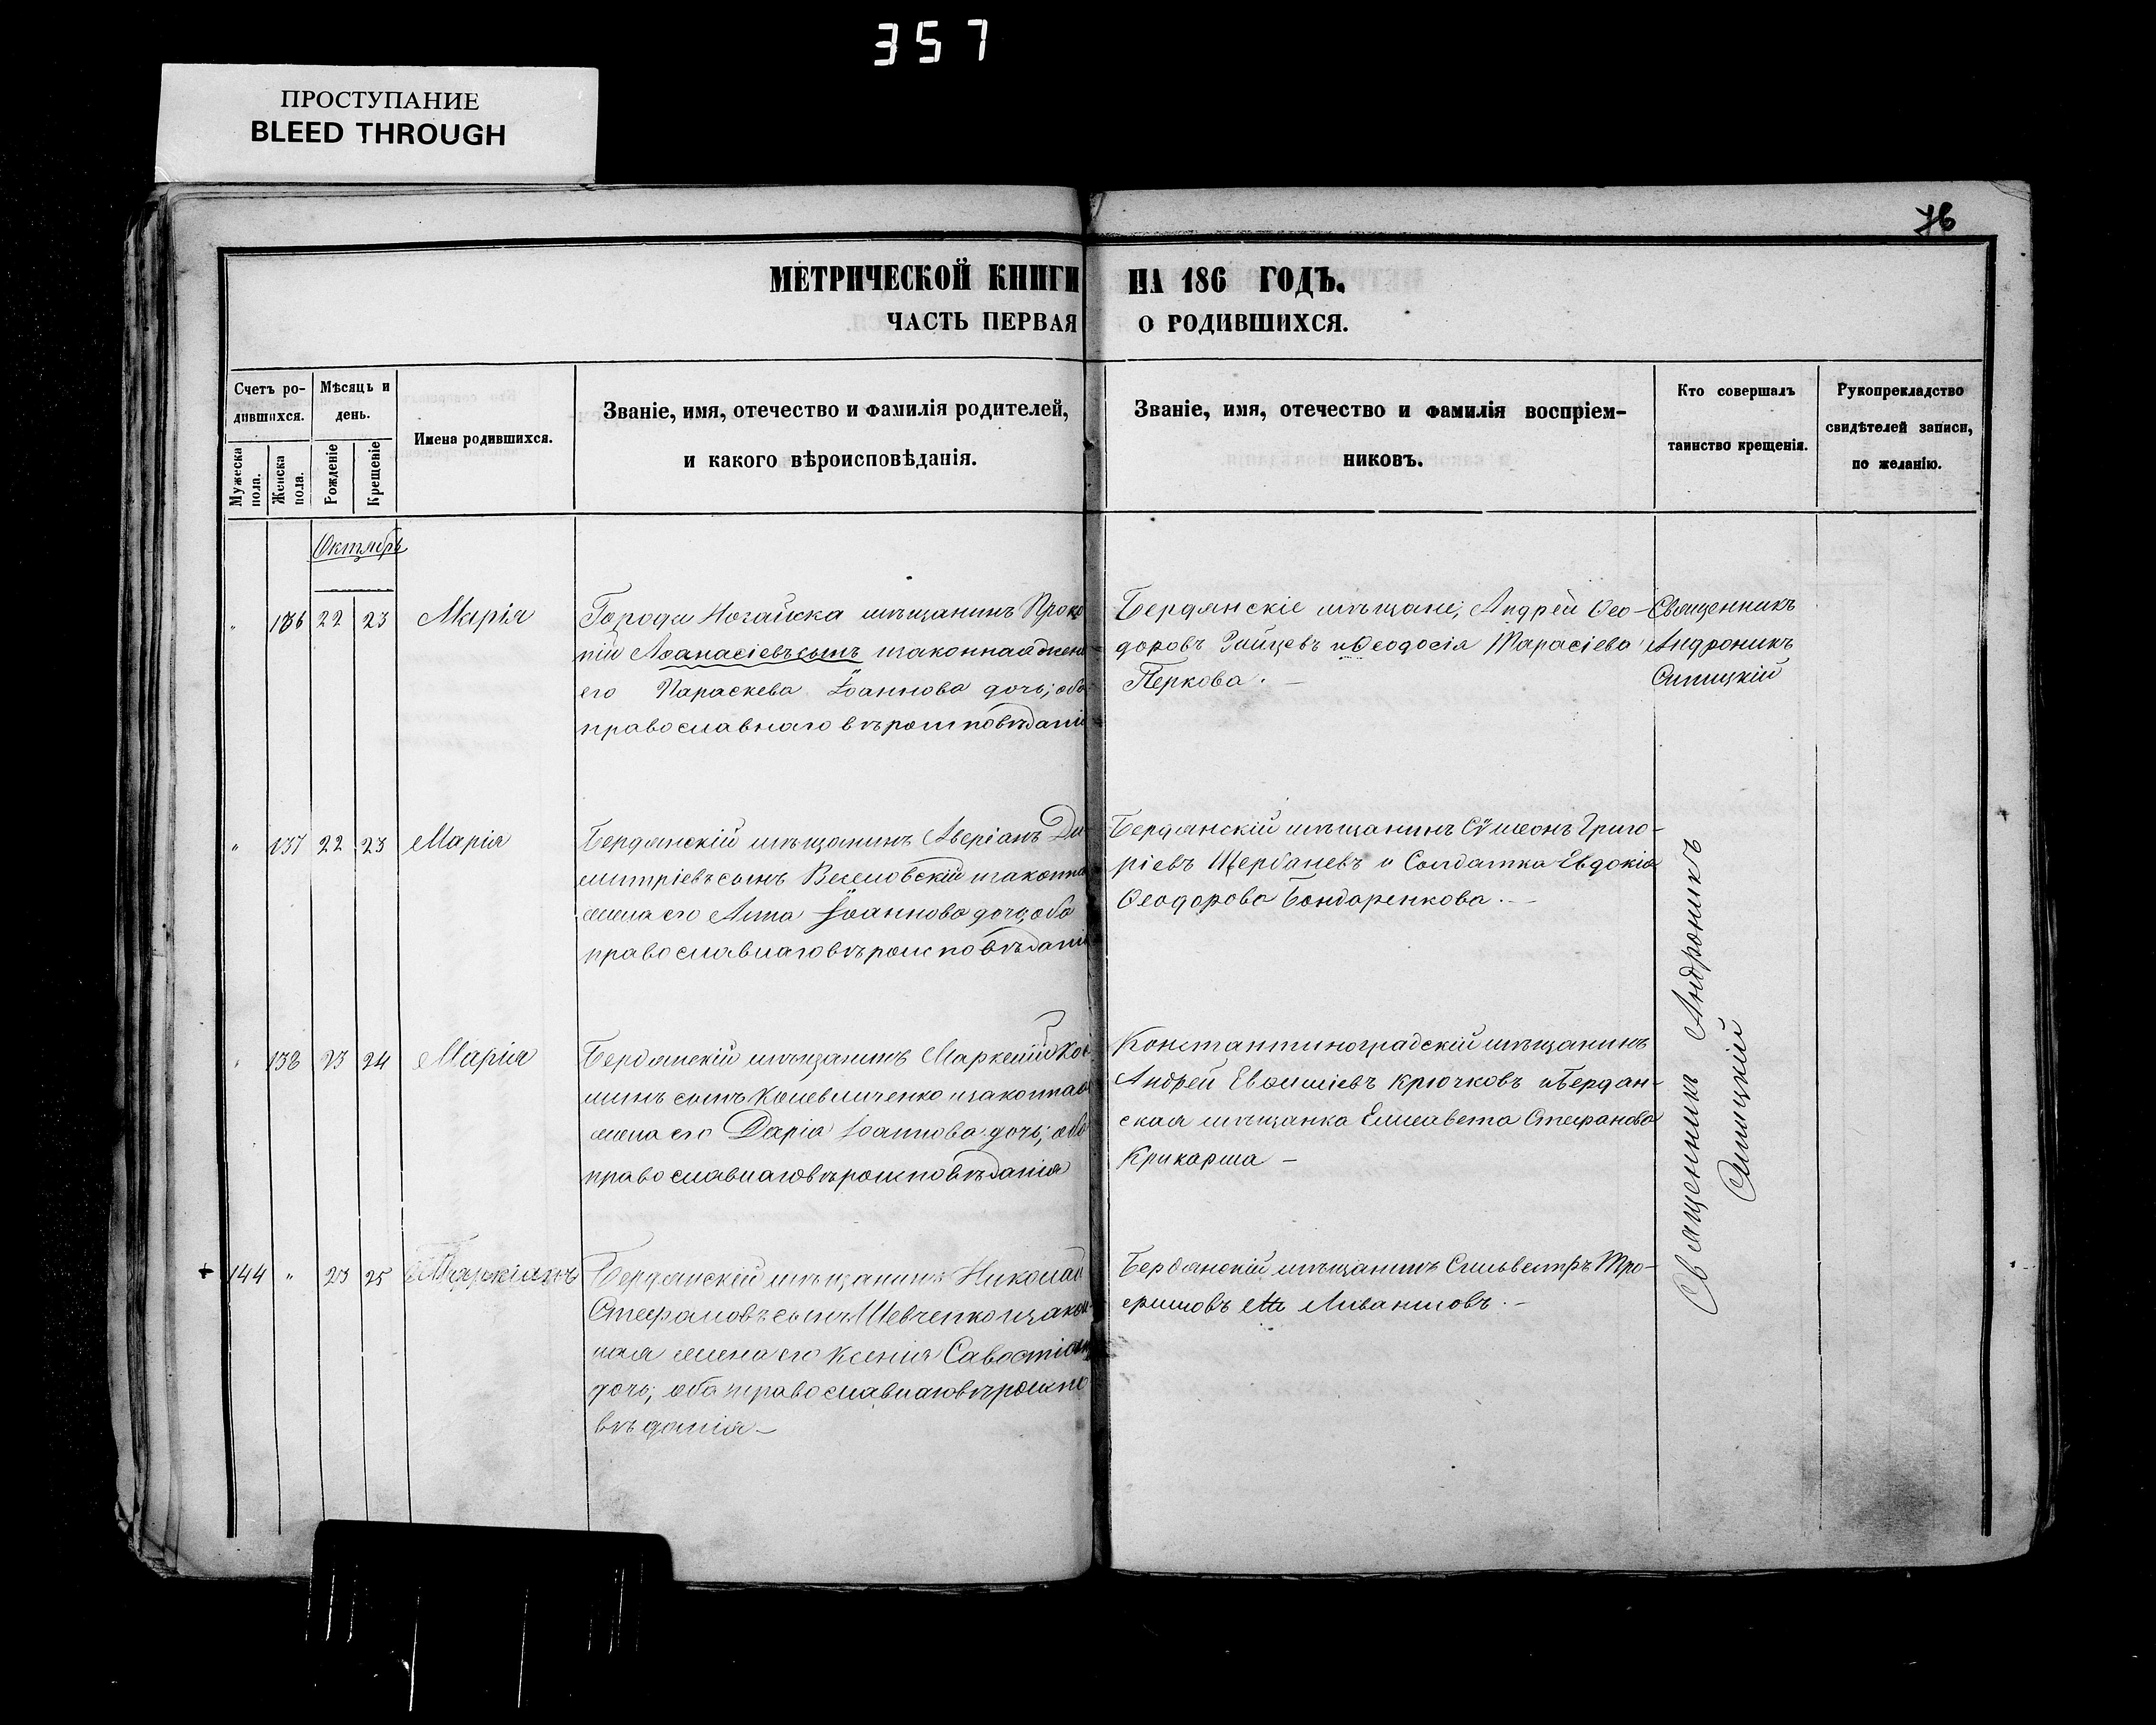 357
ПРОСТУПАНИЕ
BLEED THROUGH
76
МЕТРИЧЕСКОЙ КНИГИ НА 186 ГОДЪ.
ЧАСТЬ ПЕРВАЯ О РОДИВШИХСЯ.
Счетъ ро-
дившихся.
Мужеска
пола.
Женска
пола.
Мѣсяцъ и
день.
Рожденіе
Крещеніе
Имена родившихся.
Званіе, имя, отечество и фамилія родителей,
и какого вѣроисповѣданія.
Званіе, имя, отечество и фамилія воспріем-
никовъ.
Кто совершалъ
таинство крещенія.
Рукоприкладство
свидѣтелей записи,
по желанію.
Октябрь
" 136 22 23 Марія
Города Ногайска мѣщанинъ Проко
пій Аѳанасіевъ сынъ изаконная жена
его Параскева Іоаннова дочь; оба
православнаго вѣроисповѣдані
Бердянскіе мѣщане, Андрей Ѳео-
доровъ Зайцевъ и Ѳеодосія Тарасіева
Перкова. —
Священникъ
Андроникъ
" 137 22 23 Марія
Бердянскій мѣщанинъ Аверіанъ Ди
митріевъ сынъ изаконна
жена его Анна Іоаннова дочь; оба
православнаго вѣроисповѣдані
Бердянскій мѣщанинъ Сѵмеонъ Григо-
ріевъ и Солдатка Евдокія
Ѳеодорова Бондаренкова. —
" 138 23 24 Марія
Бердянскій мѣщанинъ
сынъ изаконная
жена его Дарія Іоаннова дочь; оба
православнаго вѣроисповѣданія
Константиноградскій мѣщанинъ
Андрей Евѳиміевъ Крючковъ и Бердян-
ская мѣщанка Елисавета Стефанова
—
Священникъ Андроникъ
+ 144 " 23 25 Маркіанъ
Бердянскій мѣщанинъ Николай
Стефановъ сынъ Шевченко изакон
ная жена его Ксенія
дочь; оба православнаго вѣроиспо
вѣданія —
Бердянскій мѣщанинъ Сильвестръ Тро-
фимовъ